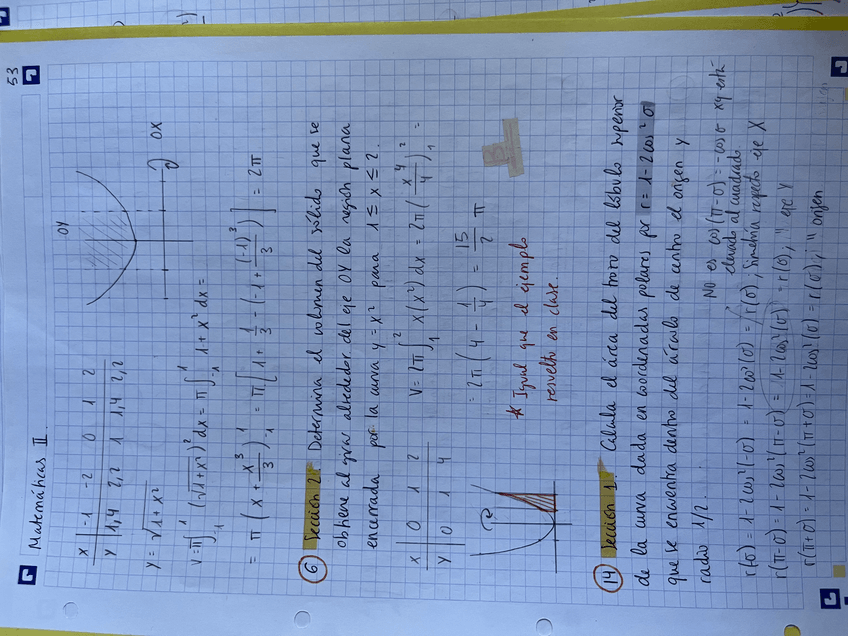 53
Matemáticas II
x | -1 -2 0 1 2
y | 1,4 2,2 1 1,4 2,2
OY
OX
y = √(1+x²)
V = π ∫₋₁¹ (√(1+x²))² dx = π ∫₋₁¹ 1 + x² dx =
= π (x + x³/3)₋₁¹ = π [1 + 1/3 - (-1 + (-1)³/3)] = 2π
6 Sección 2. Determina el volumen del sólido que se
obtiene al girar alrededor del eje OY la región plana
encerrada por la curva y = x² para 1 ≤ x ≤ 2.
x | 0 1 2
y | 0 1 4
V = 2π ∫₁² x(x²) dx = 2π (x⁴/4)₁² =
= 2π (4 - 1/4) = 15/2 π
* Igual que el ejemplo
resuelto en clase.
14 Sección 1. Calcula el área del trozo del lóbulo superior
de la curva dada en coordenadas polares por r = 1 - 2cos² σ
que se encuentra dentro del círculo de centro el origen y
radio 1/2.
NO es cos(π-σ) = -cos σ xq está
elevado al cuadrado
r(σ) = 1 - 2cos²(-σ) = 1 - 2cos²(σ) = r(σ), simetría respecto eje X
r(π-σ) = 1 - 2cos²(π-σ) = 1 - 2cos²(σ) = r(σ), " eje Y
r(π+σ) = 1 - 2cos²(π+σ) = 1 - 2cos²(σ) = r(σ), " origen